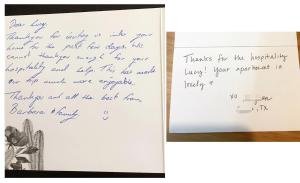 Dear Lucy,
Thankyou for inviting us into your
home for the past few days. We
cannot thankyou enough for your
hospitality and help. This has made
our trip much more enjoyable.
Thankyou and all the best from
Barbara & family
Thanks for the hospitality
Lucy! Your apartment is
lovely
xo
, TX